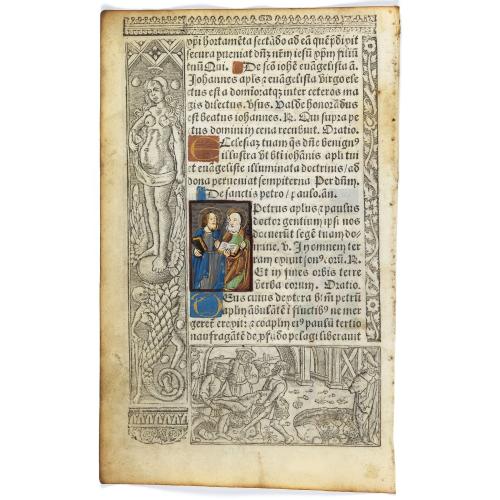 opi hortamēta sectādo ad eā que p̄dixit
secura pueniat dn̄z nr̄m iesū xpm filiū
tuū Qui. De scō iohē euāgelista ā.
Johannes apls ⁊ euāgelista virgo ele
ctus est a domīo: atqz inter ceteros ma
gis dilectus. vsus. Valde honorādus
est beatus iohannes. R. Qui supra pe
ctus domini in cena recubuit. Oratio.
Ecclesiaz tuam qs dn̄e benign⁹
illustra vt bti iohānis apli tui
et euāgeliste illuminata doctrinis/ ad
dona perueniat sempiterna Per dn̄m.
De sanctis petro / paulo. an.
Petrus aplus ⁊ paulus
doctor gentium ip̄i nos
docuerūt legē tuam do-
mine. v. In omnem ter
ram exiuit son⁹ eorū. R.
Et in fines orbis terre
verba eorum. Oratio.
Deus cuius dextera btm̄ petrū
ābulātē ī fluctib⁹ ne mer
geret erexit: ⁊ coaplm ei⁹ paulū tertio
naufragātē de p̄fūdo pelagi liberauit